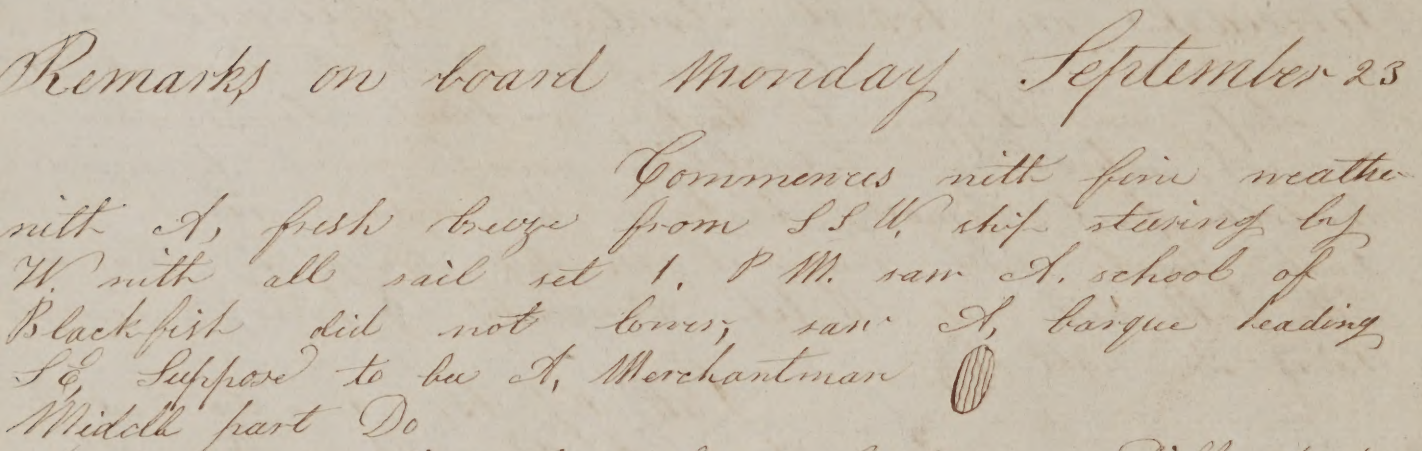 Remarks on board Monday September 23
Commences with fine weather
with A, fresh breeze from S S W, ship stearing by
W. with all sail set 1. P M. saw A. school of
Blackfish did not lower, saw A, barque heading
S E, Suppose to bee A, Merchantman
Middle part Do